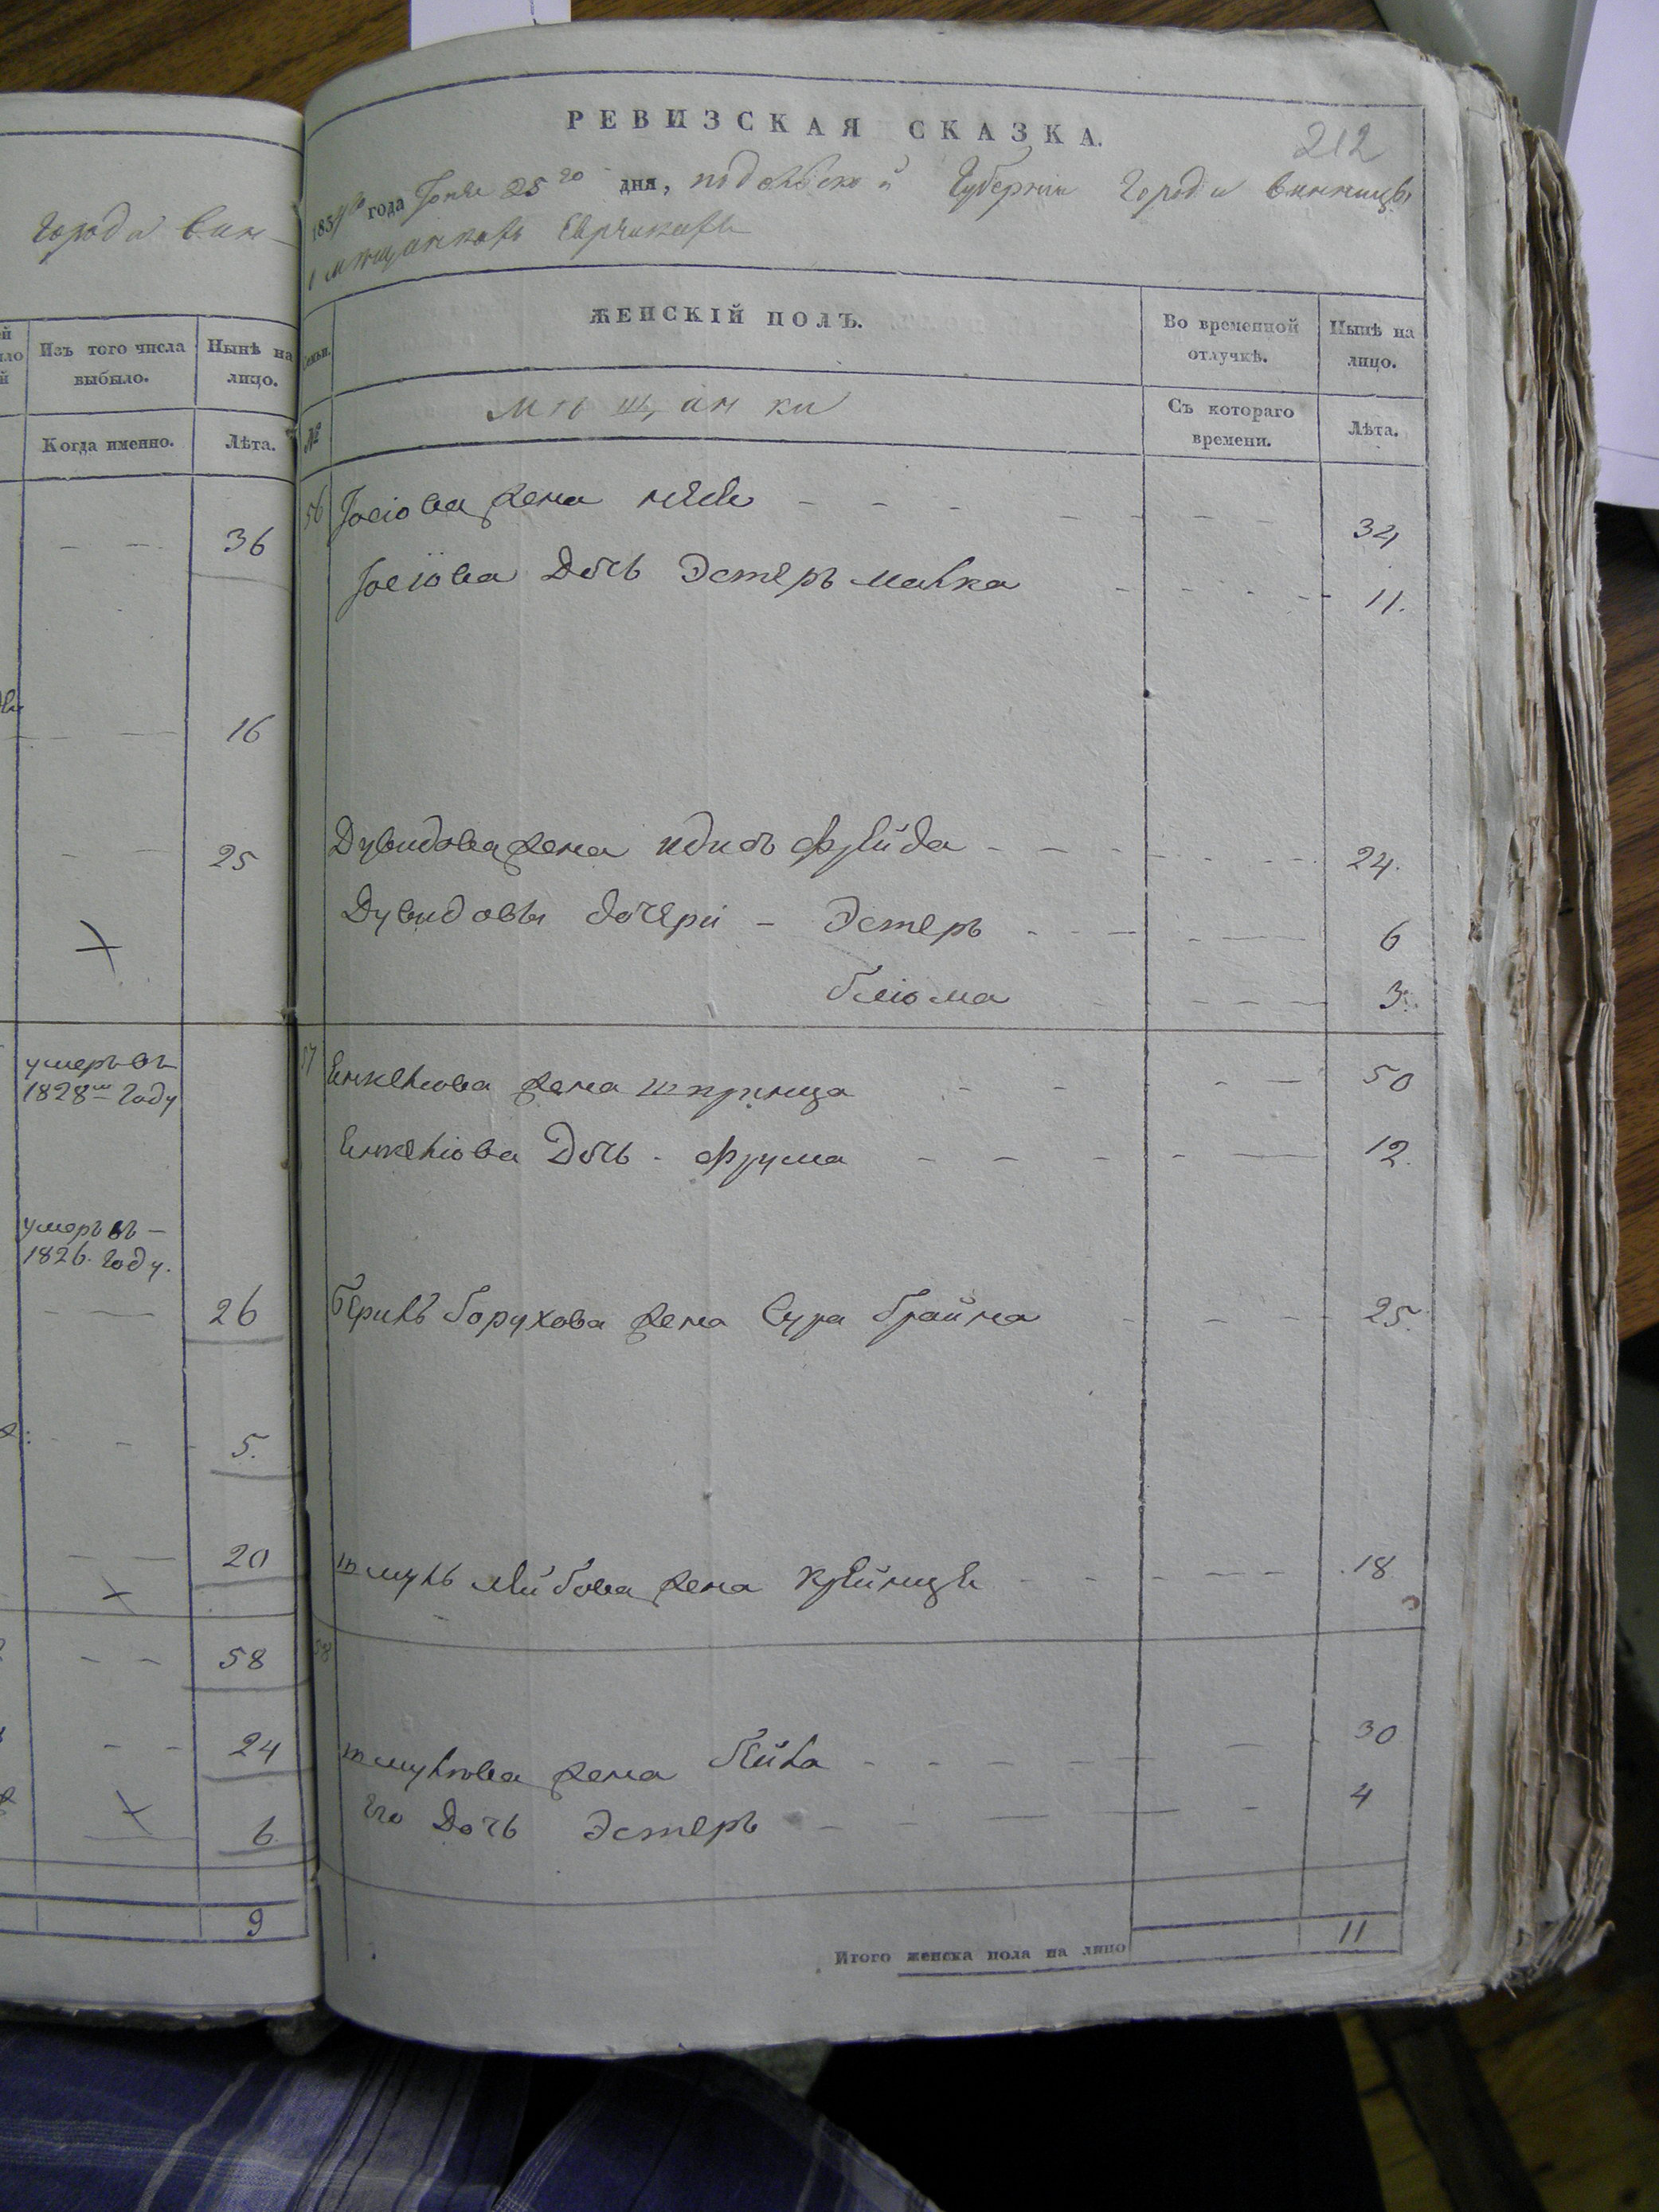 города Вин-
Изъ того числа выбыло.
Нынѣ на лицо.
Когда именно.
Лѣта.
36
16
25
умеръ въ
1828м году
умеръ въ
1826. году.
26
5.
20
58
24
6
9
212
РЕВИЗСКАЯ СКАЗКА.
1834го года 25го дня, подольской Губернии Города винницы
о мѣщанкахъ Еврейкахъ
Семьи.
ЖЕНСКІЙ ПОЛЪ.
Во временной отлучкѣ.
Нынѣ на лицо.
№
мѣщанки
Съ котораго времени.
Лѣта.
56 Iосiова жена 34
Iосiова Дочь Эстеръ малка 11.
Дувидова жена фрейда 24.
Дувидовы дочери - Эстеръ 6
блюма 3.
57 Енкелюва жена шпринца 50
Енкелюва Дочь - фрума 12.
Берилъ борухова жена Сура брайна 25.
шмуль лейбова жена крейнца 18
58
шмулюва жена бейла 30
Его Дочь Эстеръ 4
Итого женска пола на лицо 11